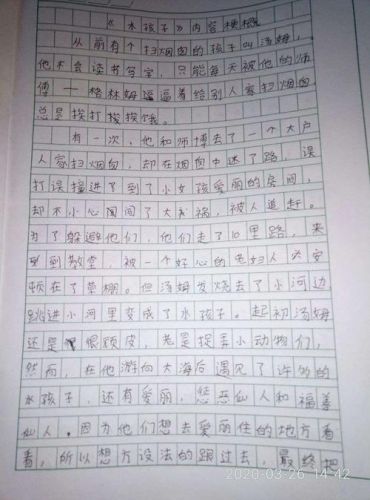 《水孩子》内容梗概
从前有个扫烟囱的孩子叫汤姆，
他不会读书写字，只能每天被他的师
傅——格林姆逼着给别人家扫烟囱，
总是挨打挨挨饿。
有一次，他和师博去了一个大户
人家扫烟囱，却在烟囱中迷了路，误
打误撞进了到了小女孩爱丽的房间，
却不小心闯了大祸，被人追赶。
为了躲避他们，他们走了10里路，来
到到教堂，被一个好心的老妇人安
顿在了草棚。但汤姆发烧去了小河边
跳进小河里变成了水孩子。起初汤姆
还是很顽皮，老是捉弄小动物们，
然而，在他游向大海后遇见了许多的
水孩子，还有爱丽，惩恶仙人和福善
仙人。因为他们想去爱丽住的地方看
看，所以想方设法的跟过去，最终把
2020-03-26 14:42